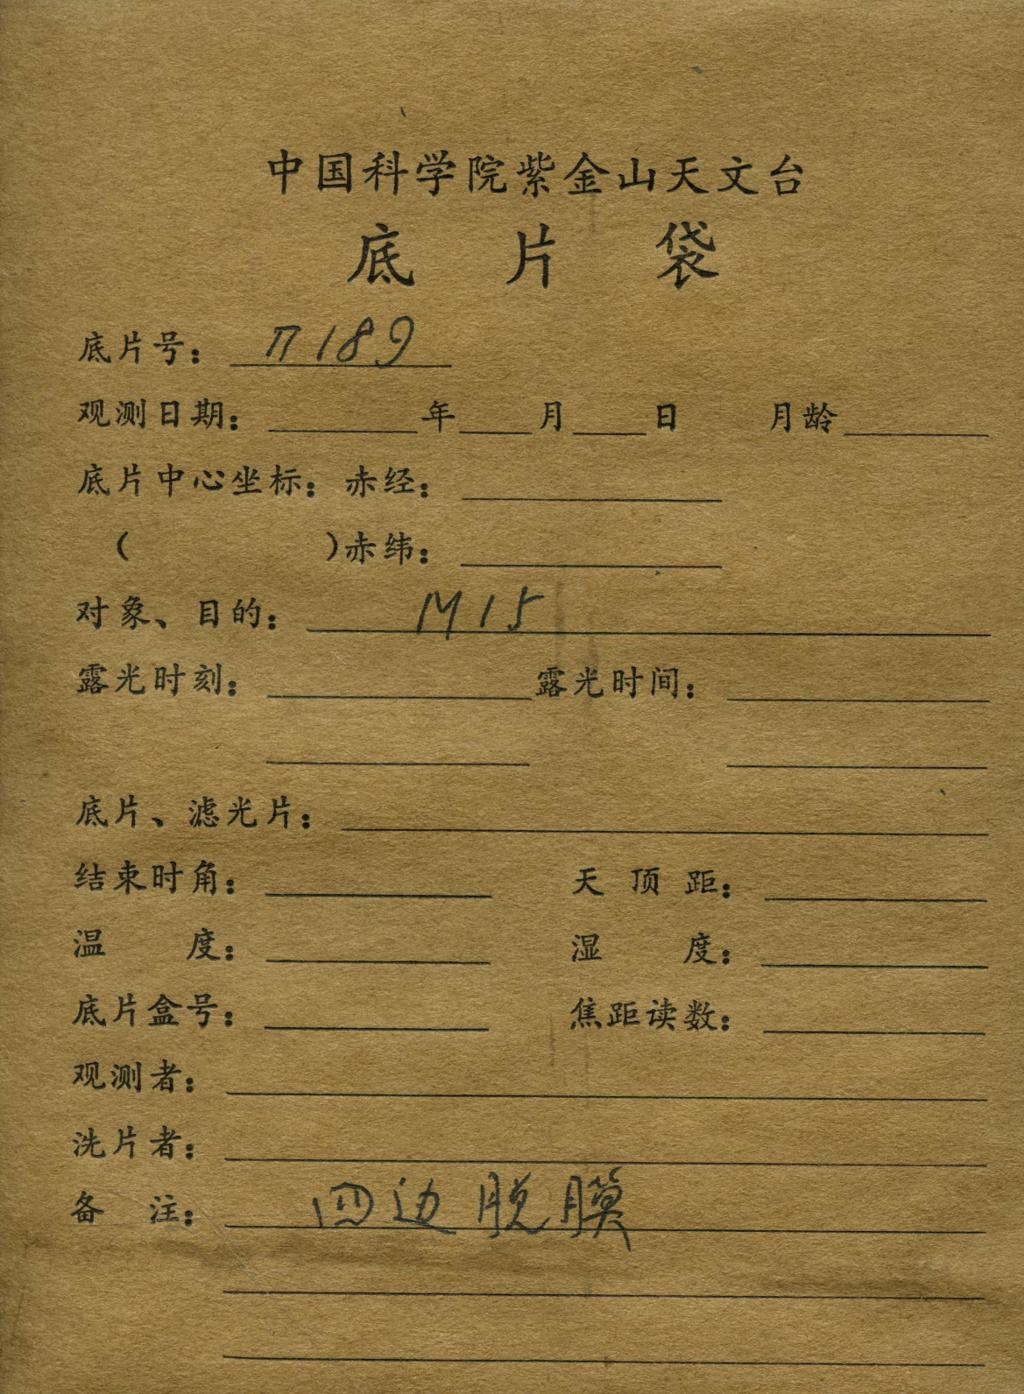 中国科学院紫金山天文台
底片袋
底片号： П189
观测日期： 年 月 日 月龄
底片中心坐标：赤经：
（ ）赤纬：
对象、目的： M15
露光时刻： 露光时间：
底片、滤光片：
结束时角： 天顶距：
温度： 湿度：
底片盒号： 焦距读数：
观测者：
洗片者：
备注： 四边脱膜